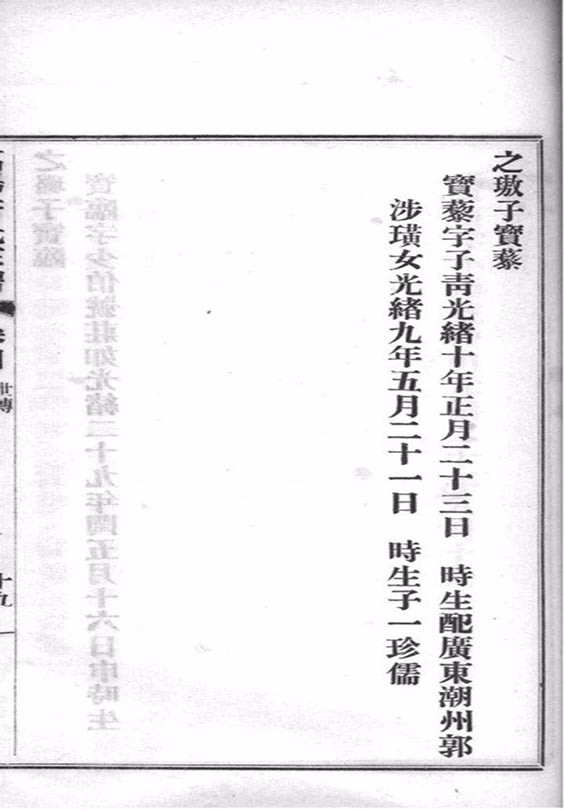 之璈子寶藜
寶藜字子靑光緒十年正月二十三日　時生配廣東潮州郭
涉璜女光緒九年五月二十一日　時生子一珍儒
世傳
十九